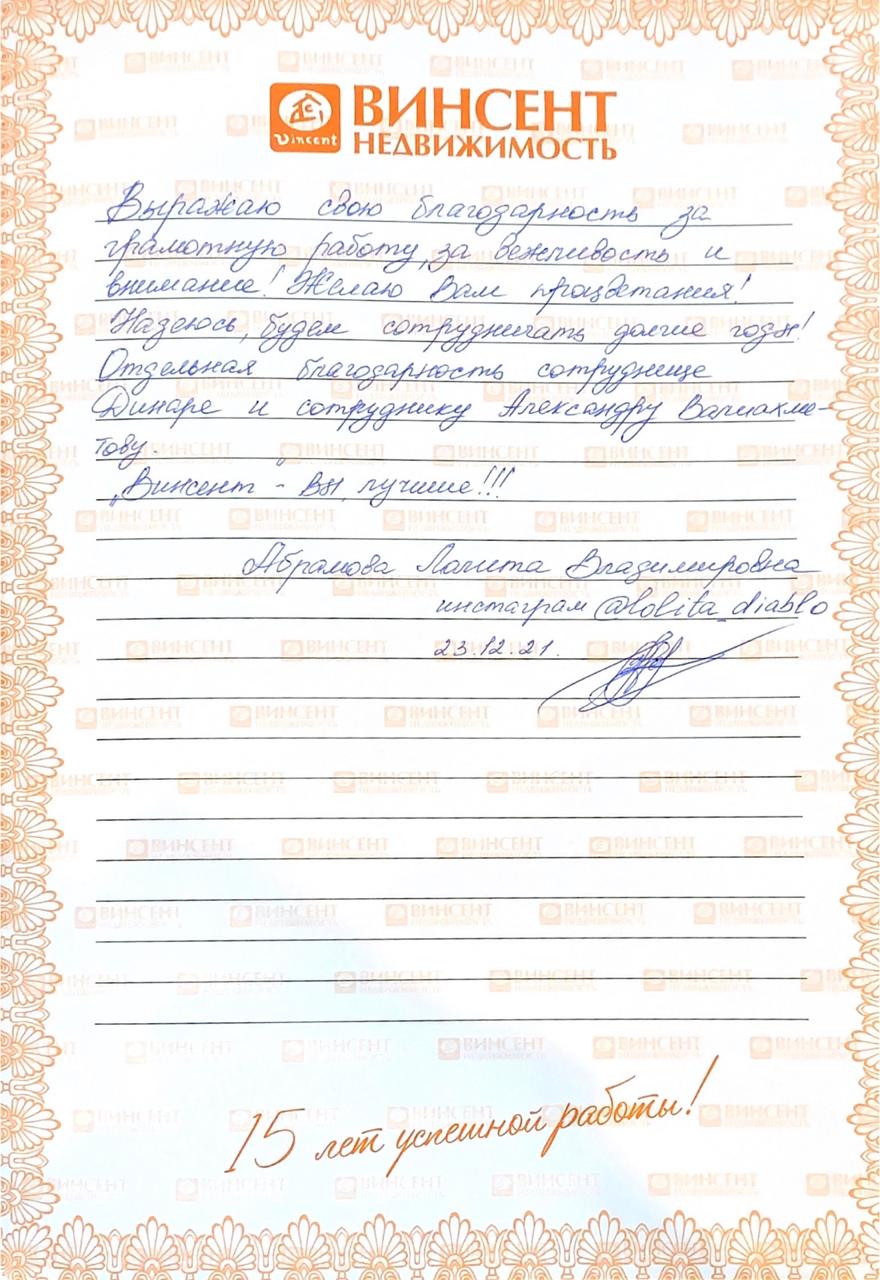 Vincent
ВИНСЕНТ
НЕДВИЖИМОСТЬ
Выражаю свою благодарность за
грамотную работу, за вежливость и
внимание! Желаю Вам процветания!
Надеюсь, будем сотрудничать долгие годы!
Отдельная благодарность сотруднице
Динаре и сотруднику Александру Валиахме-
тову.
„Винсент" - вы лучшие!!!
Абрамова Лолита Владимировна
инстаграм @lolita_diablo
23.12.21.
15 лет успешной работы!